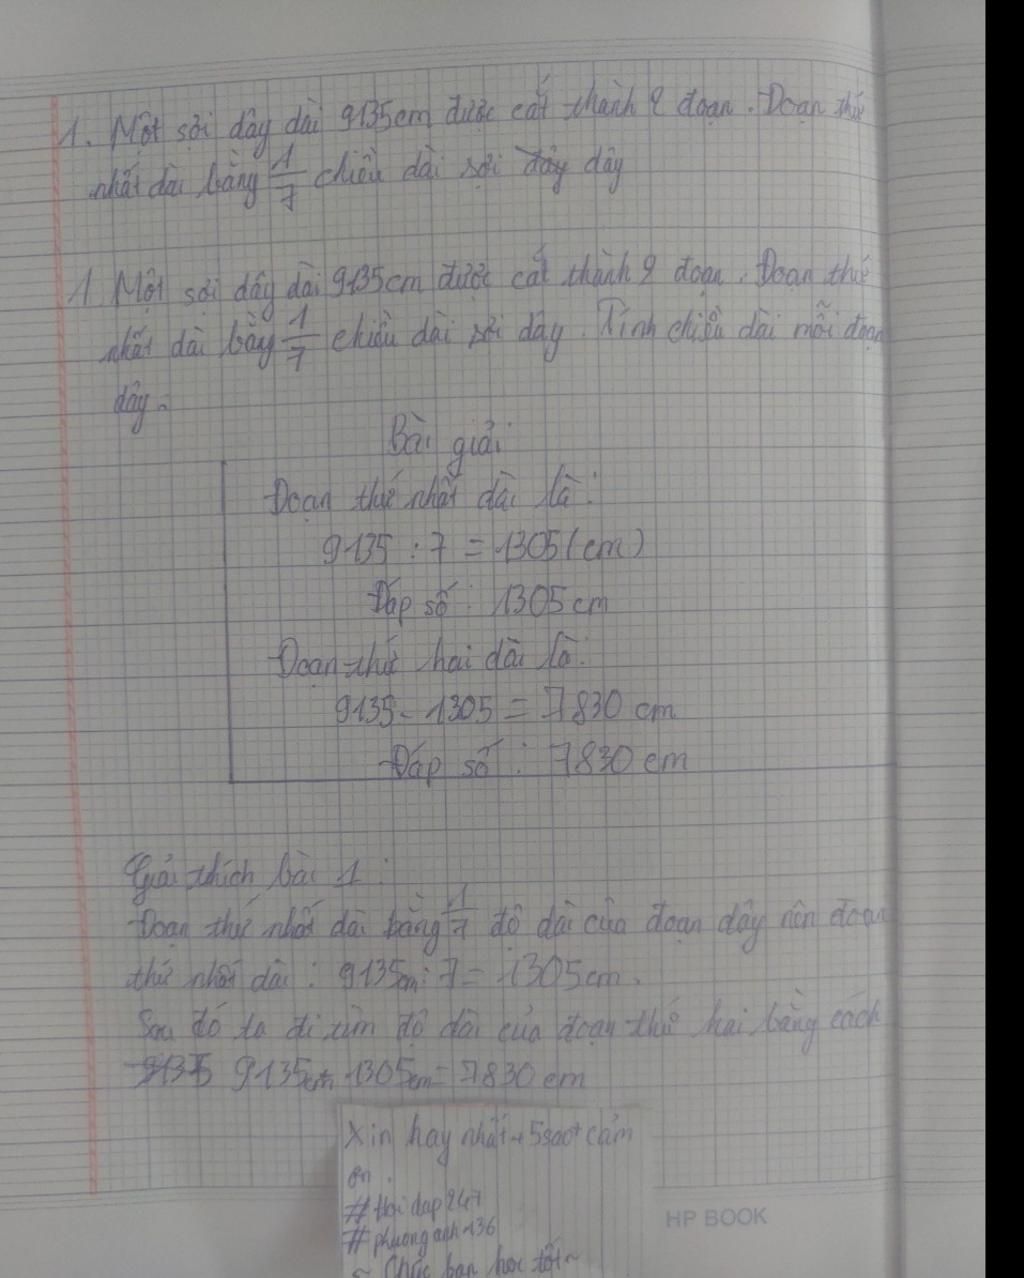 1. Một sợi dây dài 9135cm được cắt thành 2 đoạn. Đoạn thứ
nhất dài bằng 1/7 chiều dài sợi dây dây
1 Một sợi dây dài 9135cm được cắt thành 2 đoạn. Đoạn thứ
nhất dài bằng 1/7 chiều dài sợi dây. Tính chiều dài mỗi đoạn
dây.
Bài giải
Đoạn thứ nhất dài là:
9135 : 7 = 1305 (cm)
Đáp số : 1305 cm
Đoạn thứ hai dài là:
9135 - 1305 = 7830 cm
Đáp số : 7830 cm
Giải thích bài 1 :
Đoạn thứ nhất dài bằng 1/7 độ dài của đoạn dây nên đoạn
thứ nhất dài : 9135cm : 7 = 1305cm.
Sau đó ta đi tìm độ dài của đoạn thứ hai bằng cách
9135 9135cm - 1305cm = 7830 cm
Xin hay nhất + 5sao + cảm
ơn.
#Hoidap247
#phuonganh136
~ Chúc bạn học tốt ~
HP BOOK